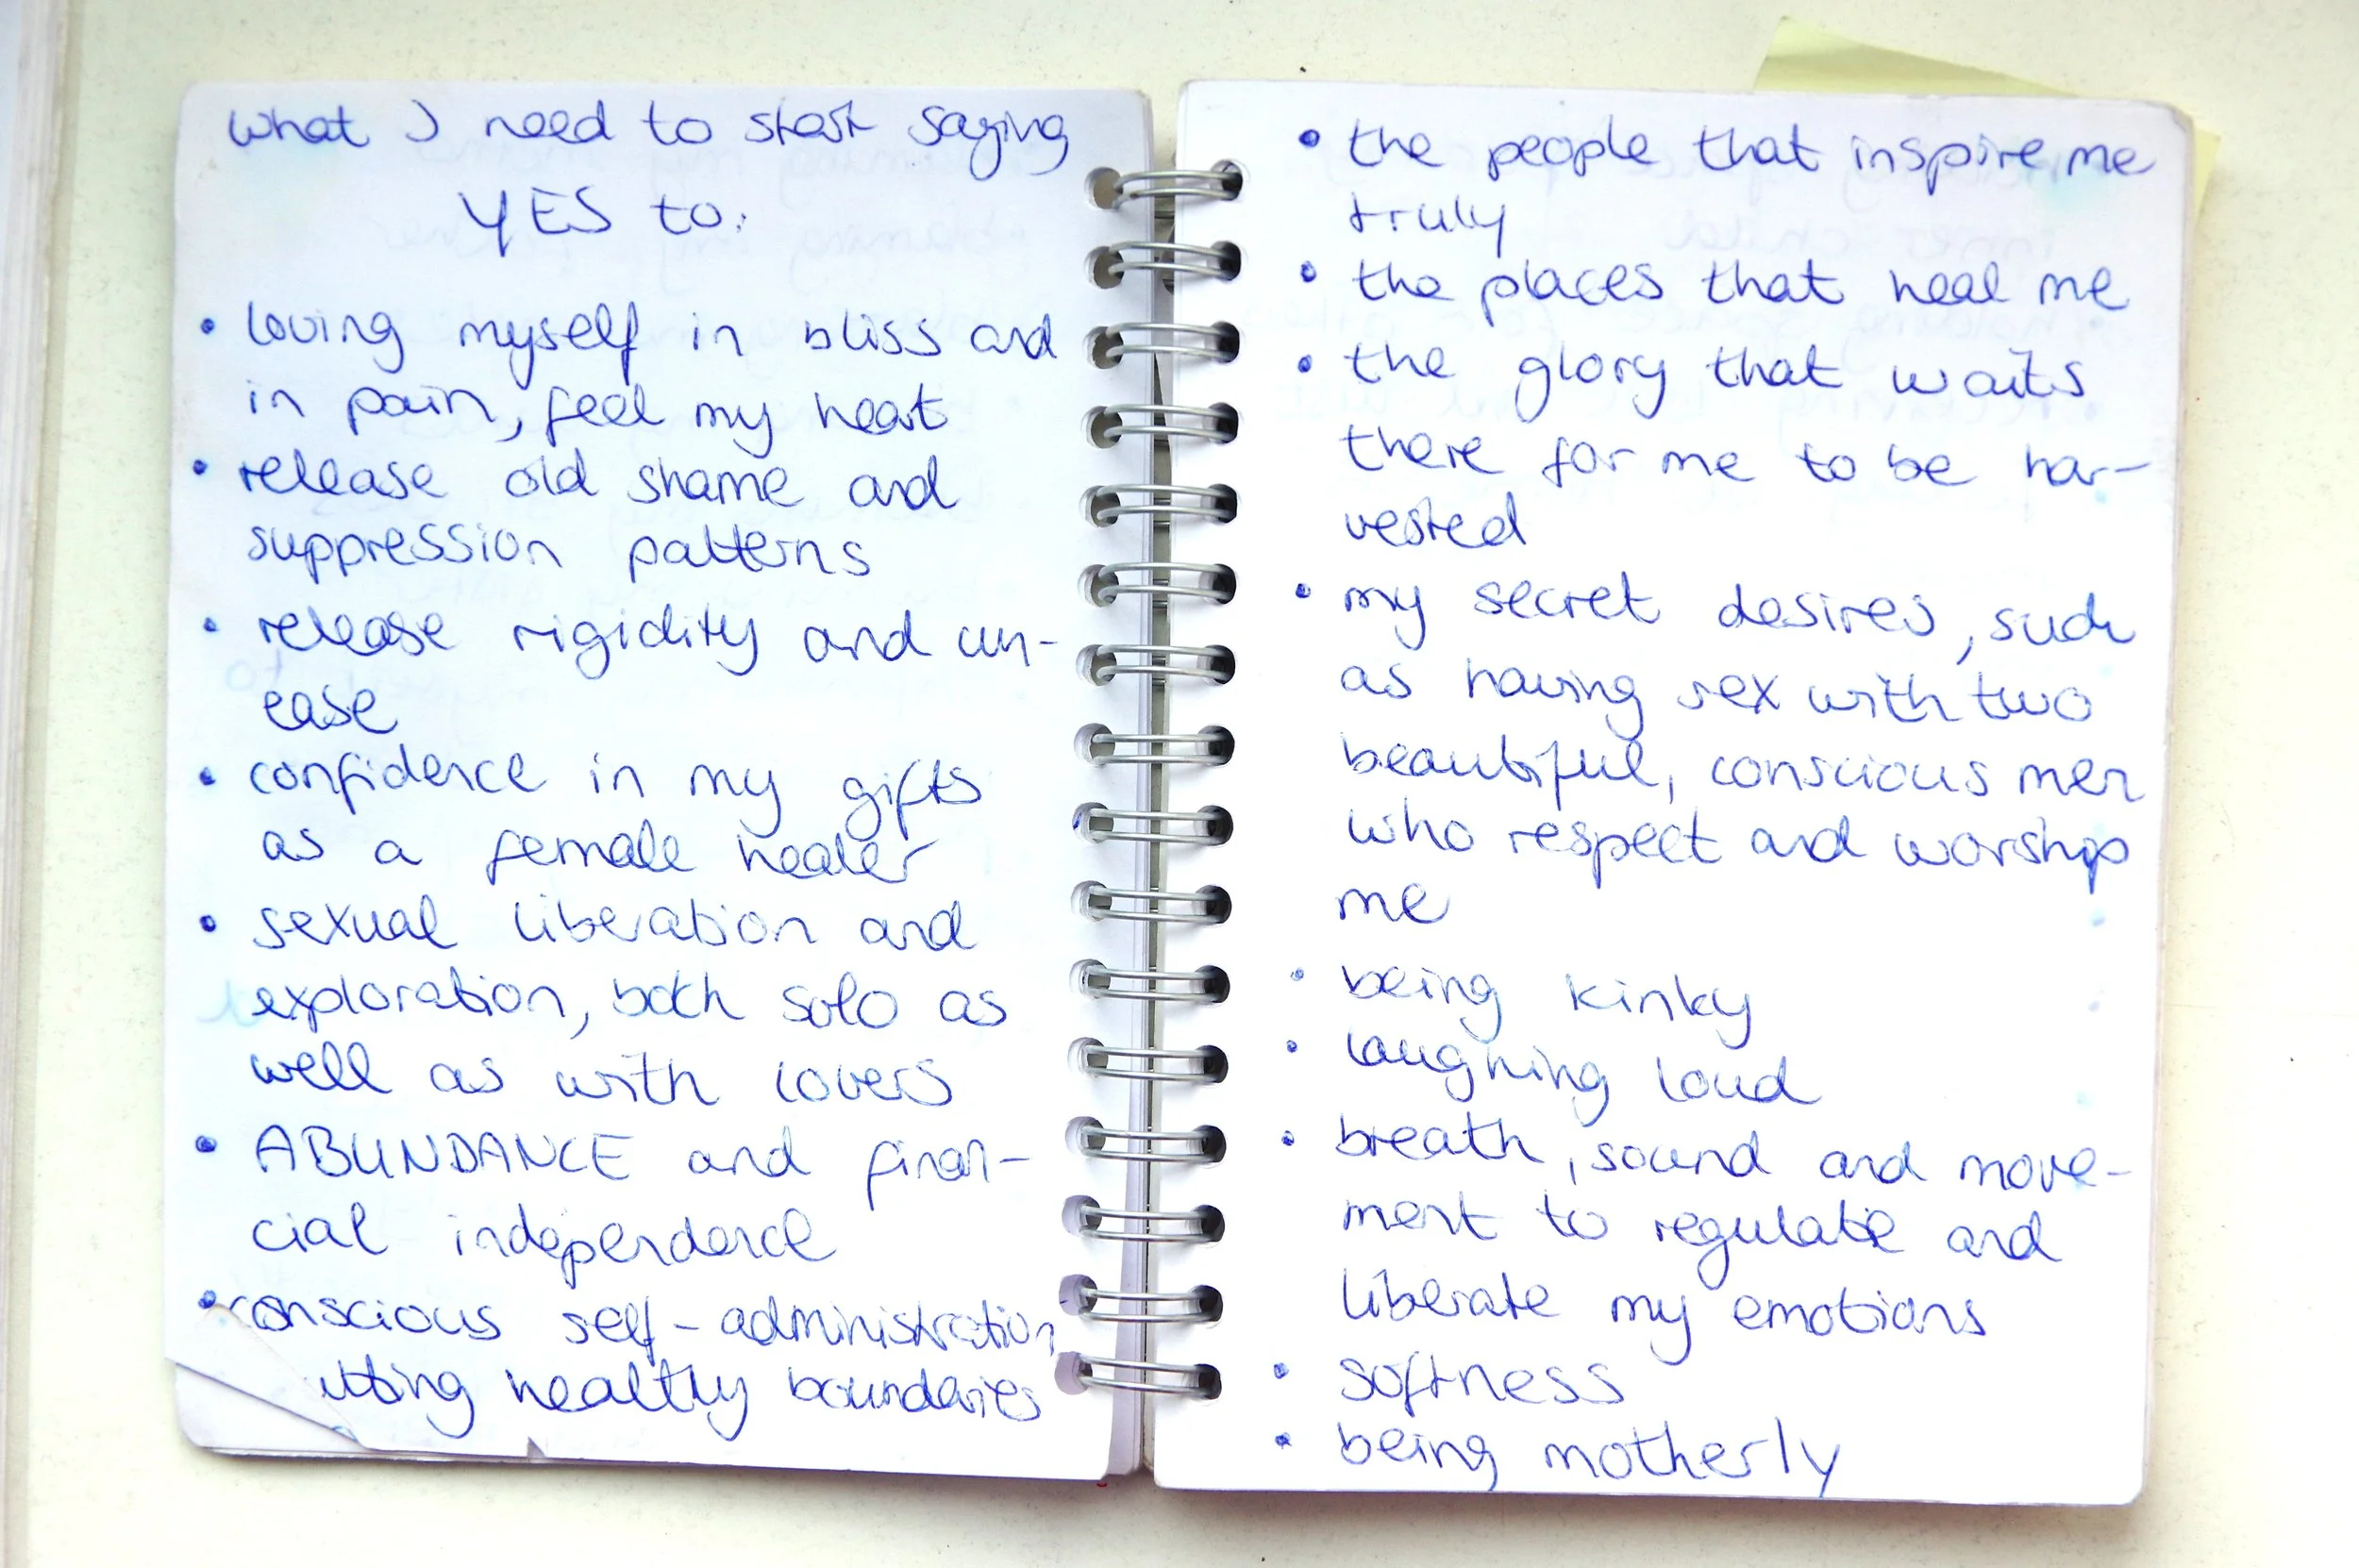 what I need to start saying
YES to:
• loving myself in bliss and
in pain, feel my heart
• release old shame and
suppression patterns
• release rigidity and un-
ease
• confidence in my gifts
as a female healer
• sexual liberation and
exploration, both solo as
well as with lovers
• ABUNDANCE and finan-
cial independence
• conscious self-administration
healthy boundaries
• the people that inspire me
truly
• the places that heal me
• the glory that waits
there for me to be har-
vested
• my secret desires, such
as having sex with two
beautiful, conscious men
who respect and worship
me
• being kinky
• laughing loud
• breath, sound and move-
ment to regulate and
liberate my emotions
• softness
• being motherly